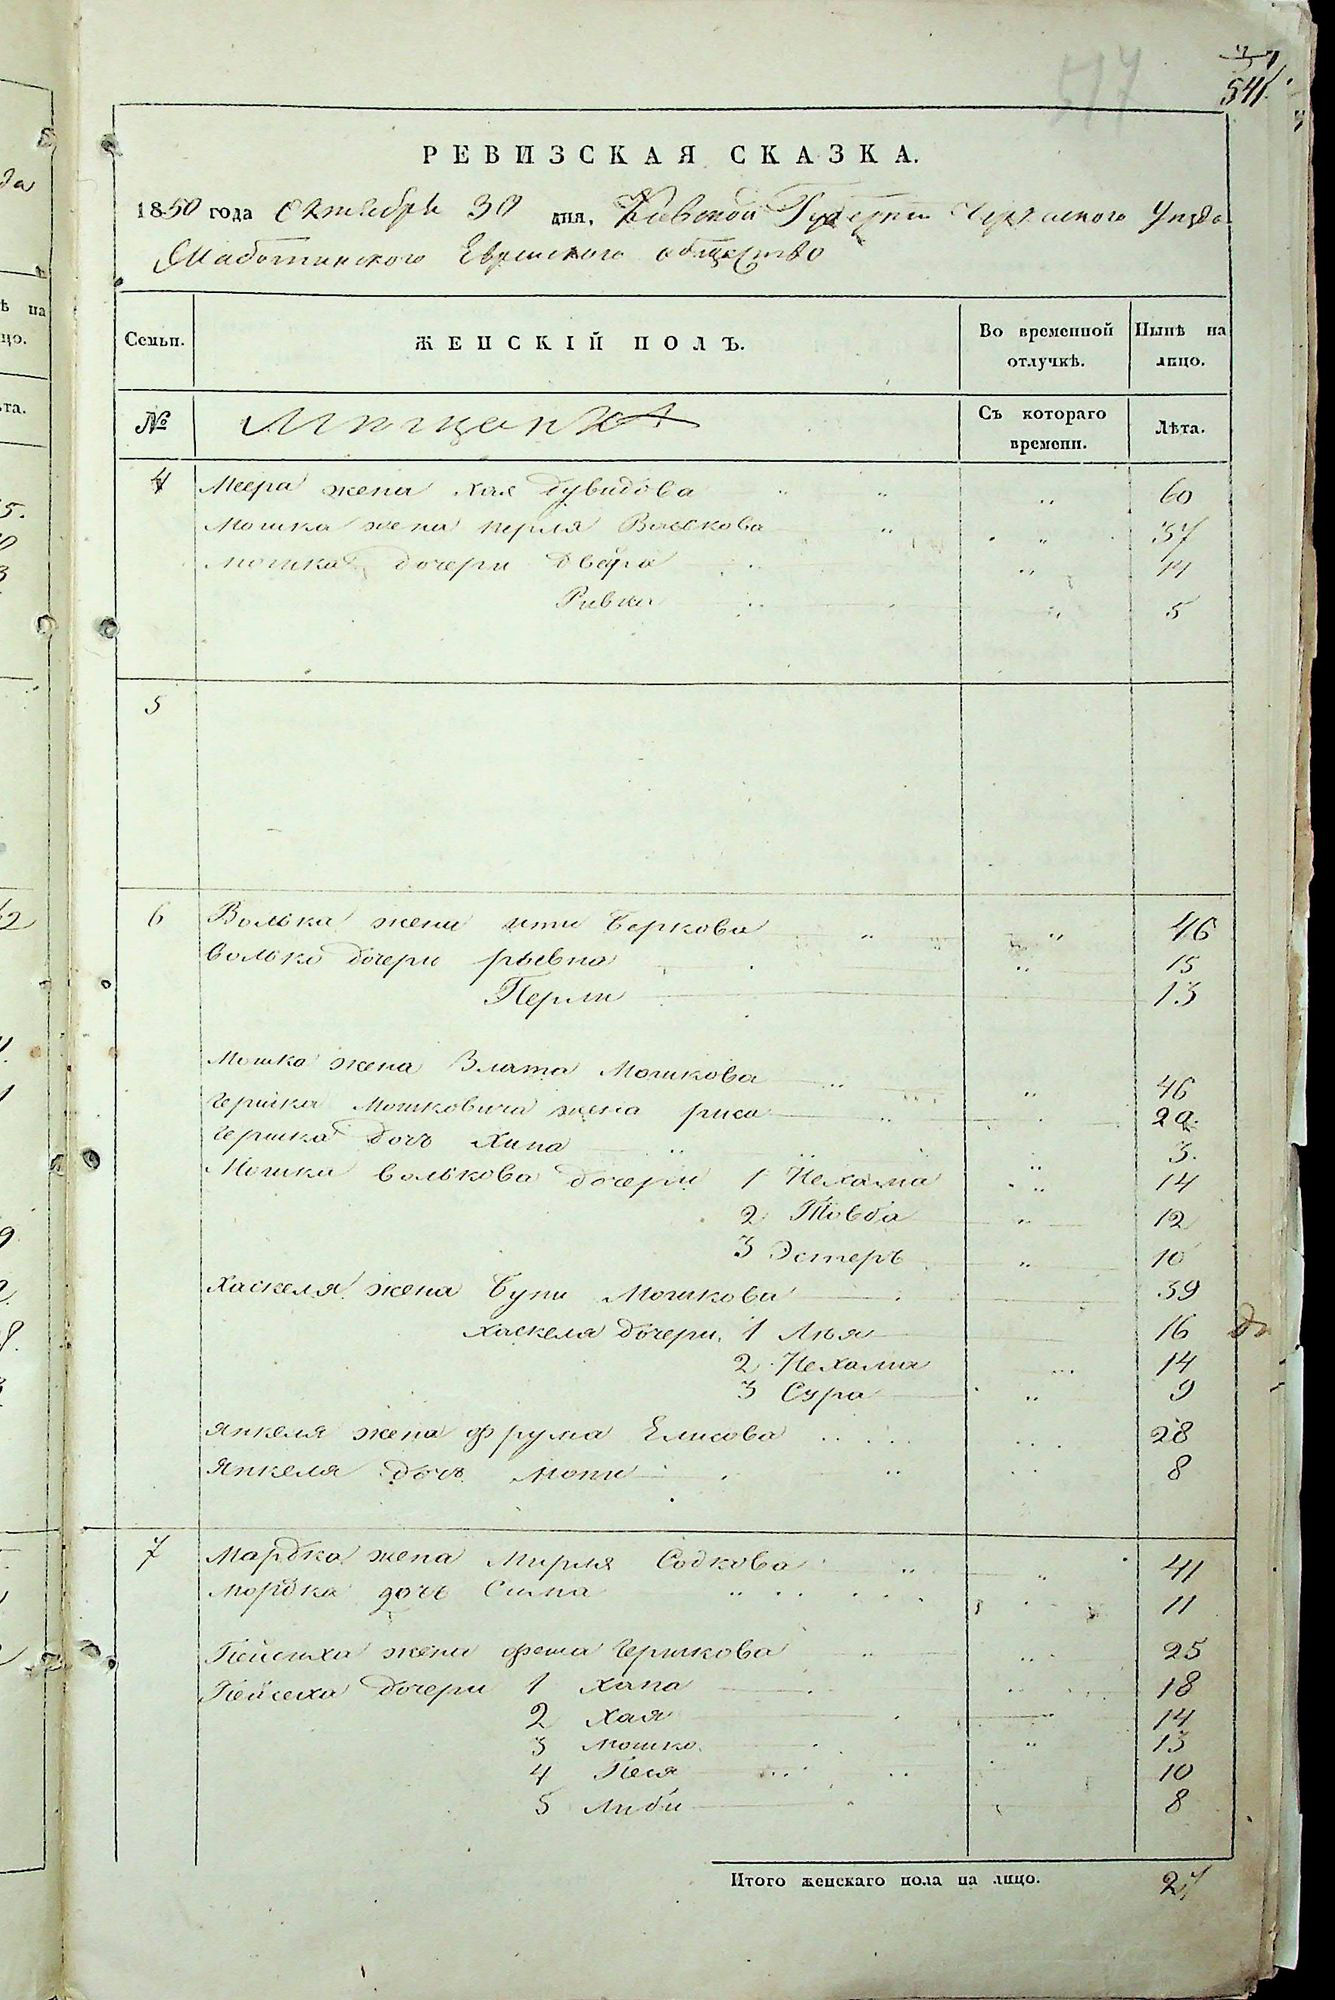 517
541
РЕВИЗСКАЯ СКАЗКА.
1850 года Октября 30 дня, Киевской Губернии Черкаского Уезда
Смаботинского Еврейского общество
Семьи. ЖЕНСКІЙ ПОЛЪ. Во временной отлучкѣ. Нынѣ на лицо.
№ Мещанка Съ котораго времени. Лѣта.
4 Меера жена Хая Дувидова 60
Мошка жена перля Васькова 37
мошка дочери Двейра 11
Ривка 5
5
6 Волька жена ити Беркова 46
волько дочери рывна 15
Перли 13
Мошко жена Злата Мошкова 46
Гершка Мошковича жена риса 20
Гершка дочь Хана 3.
Мошка волькова дочери 1 Нехама 14
2 Товба 12
3 Эстеръ 10
Хаскеля жена Буни Мошкова 39
хаскеля дочери 1 Лья 16
2 Нехама 14
3 Сура 9
Янкеля жена фрума Елисова 28
Янкеля дочь Моти 8
7 Мардка жена Мирля Содкова 41
Мордка дочь Сима 11
Пейсиха жена феша Гершкова 25
Пейсеха дочери 1 Хана 18
2 Хая 14
3 Мошко 13
4 Песя 10
5 Либи 8
Итого женскаго пола на лицо. 27